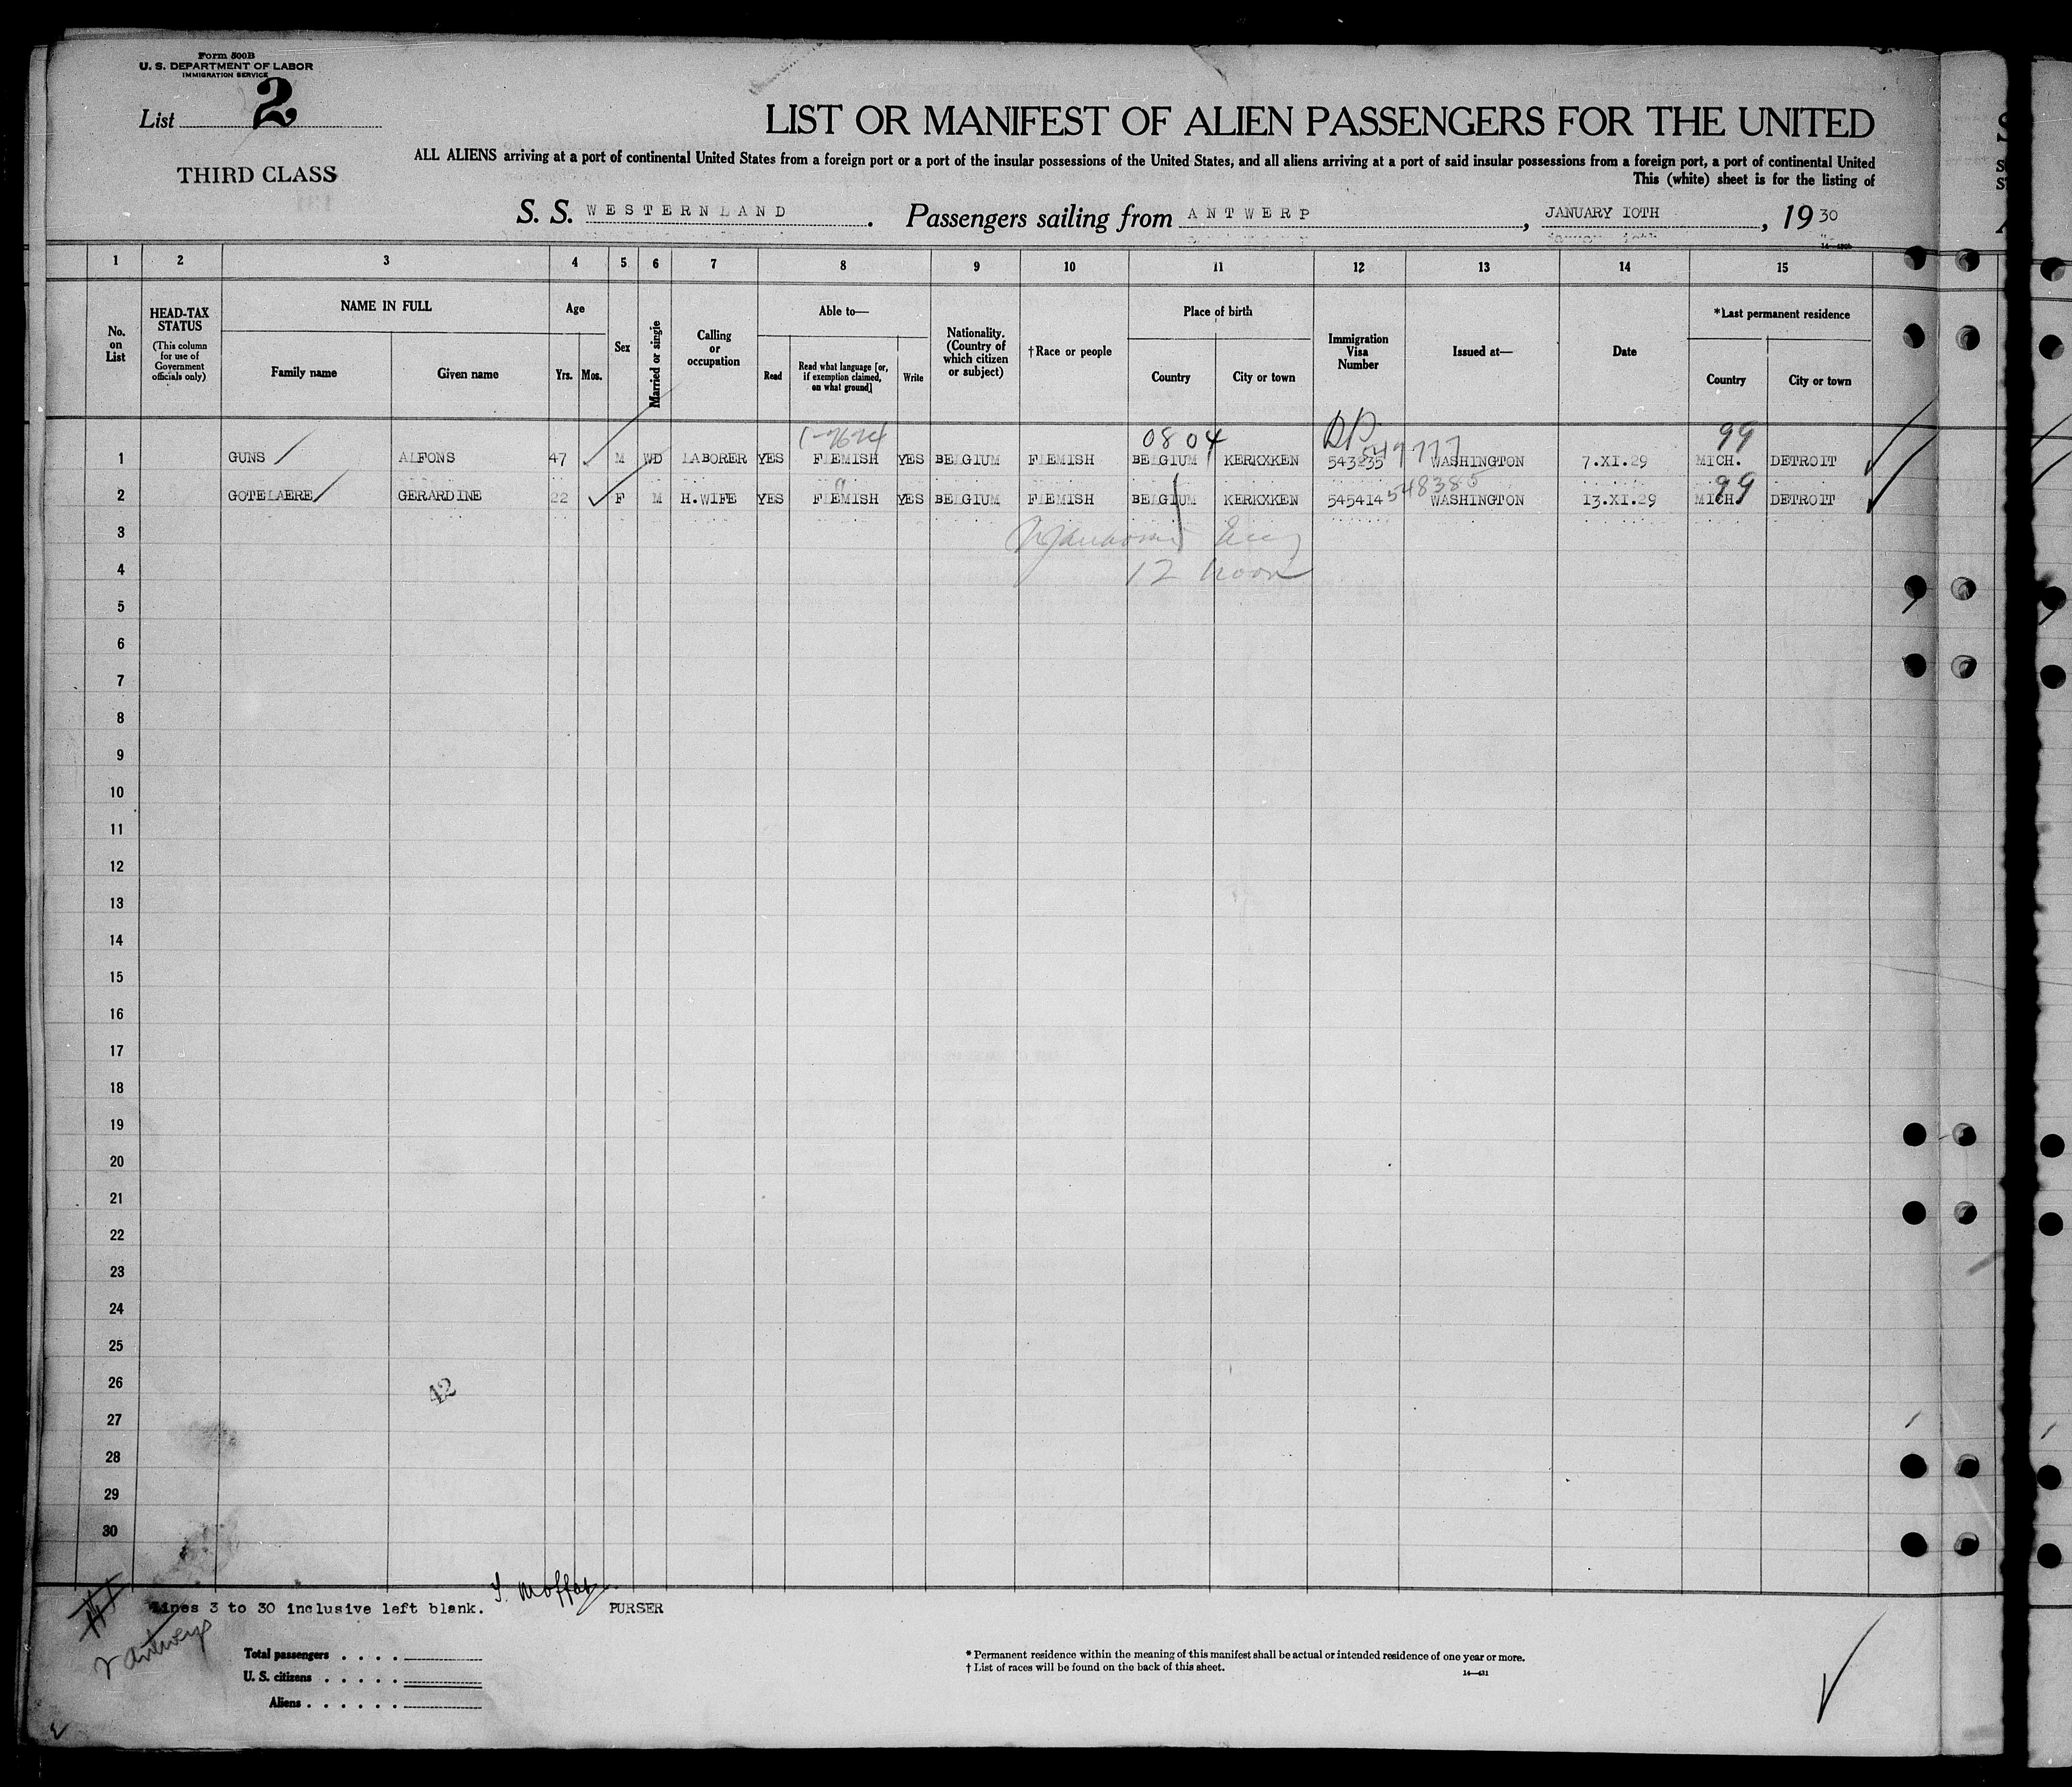 Form 500B
U. S. DEPARTMENT OF LABOR
IMMIGRATION SERVICE
List 2
THIRD CLASS
LIST OR MANIFEST OF ALIEN PASSENGERS FOR THE UNITED
ALL ALIENS arriving at a port of continental United States from a foreign port or a port of the insular possessions of the United States, and all aliens arriving at a port of said insular possessions from a foreign port, a port of continental United
This (white) sheet is for the listing of
S. S. WESTERNLAND. Passengers sailing from ANTWERP, JANUARY 10TH, 1930
1 2 3 4 5 6 7 8 9 10 11 12 13 14 15
No. on List
HEAD-TAX STATUS
(This column for use of Government officials only)
NAME IN FULL
Family name Given name
Age
Yrs. Mos.
Sex
Married or single
Calling or occupation
Able to—
Read Read what language [or, if exemption claimed, on what ground] Write
Nationality. (Country of which citizen or subject)
†Race or people
Place of birth
Country City or town
Immigration Visa Number
Issued at—
Date
*Last permanent residence
Country City or town
0804 99
1 GUNS ALFONS 47 M WD LABORER YES FLEMISH YES BELGIUM FLEMISH BELGIUM KERKXKEN 543235 WASHINGTON 7.XI.29 MICH. DETROIT
548385 99
2 GOTELAERE GERARDINE 22 F M H.WIFE YES FLEMISH YES BELGIUM FLEMISH BELGIUM KERKXKEN 545414 WASHINGTON 13.XI.29 MICH. DETROIT
3
12 noon
4
5
6
7
8
9
10
11
12
13
14
15
16
17
18
19
20
21
22
23
24
25
26
42
27
28
29
30
Lines 3 to 30 inclusive left blank. PURSER
Antwerp
Total passengers . . . .
U. S. citizens . . . . .
Aliens . . . . . .
* Permanent residence within the meaning of this manifest shall be actual or intended residence of one year or more.
† List of races will be found on the back of this sheet.
14—431